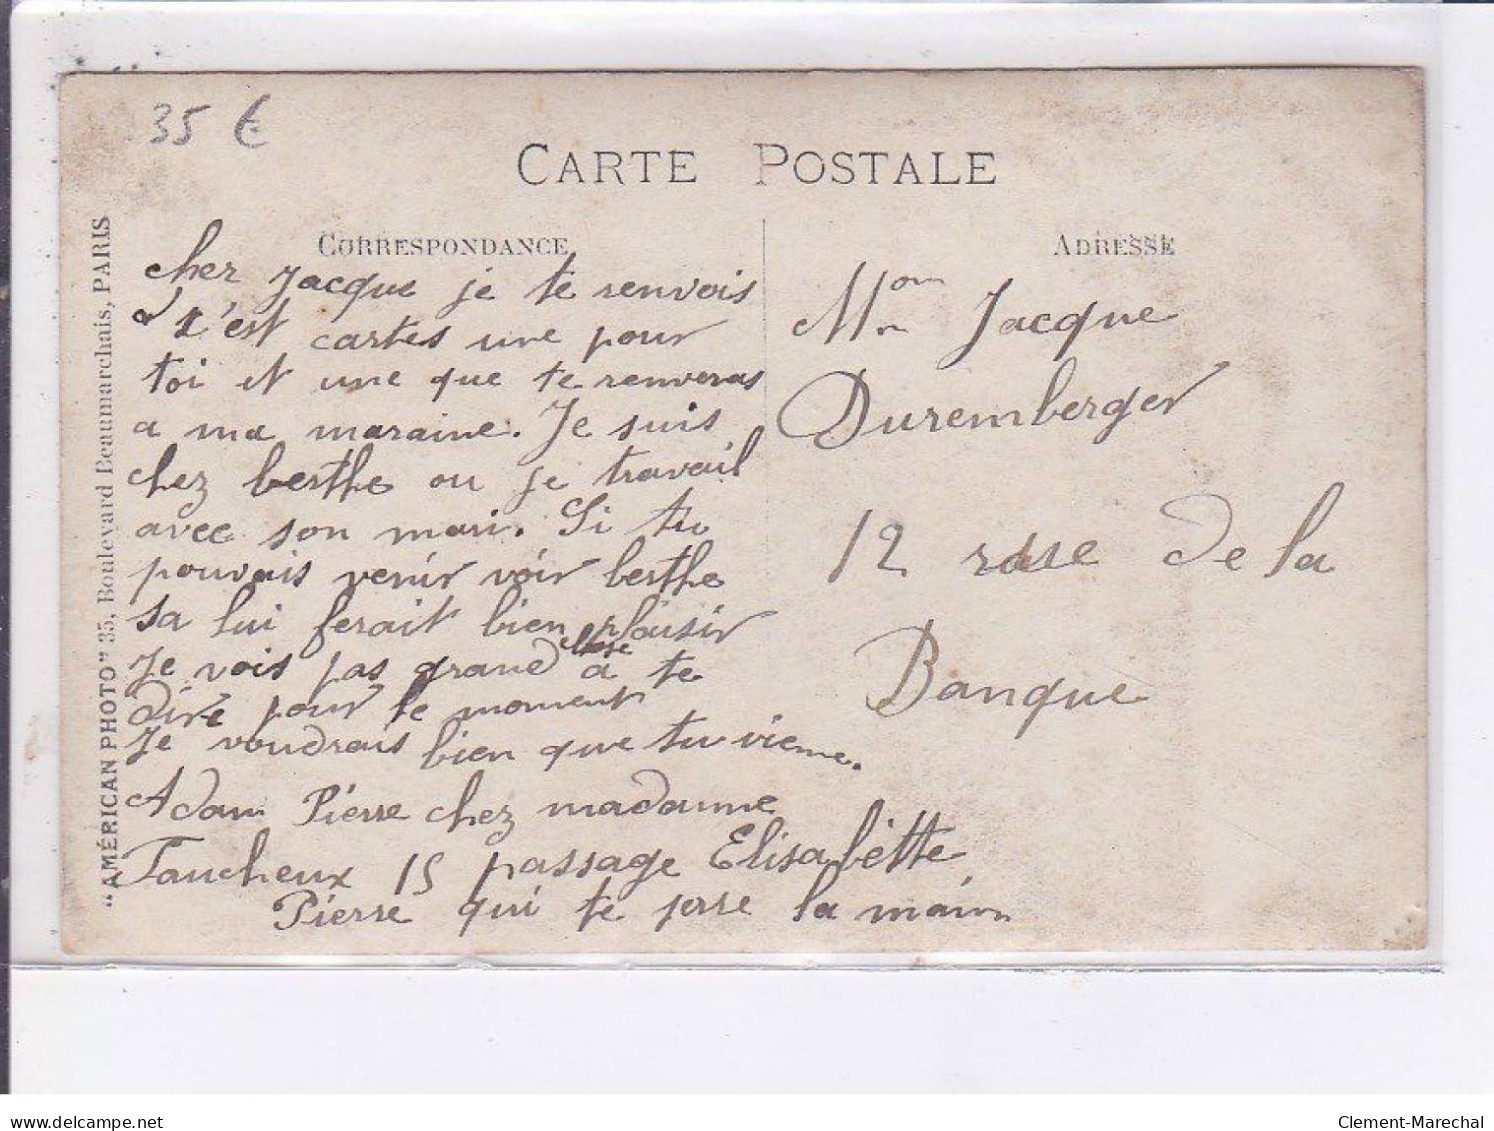 35 €
CARTE POSTALE
CORRESPONDANCE
ADRESSE
"AMÉRICAN PHOTO" 35, Boulevard Beaumarchais, PARIS
cher Jacque je te renvois
c'est cartes une pour
toi et une que te renveras
a ma maraine. Je suis
chez berthe ou je travail
avec son mari. Si tu
pouvais venir voir berthe
sa lui ferait bien plaisir
Je vois pas grand chose a te
dire pour le moment
Je voudrais bien que tu vienne.
Adam Pierre chez madamme
Taucheux 15 passage Elisabètte
Pierre qui te serre la main
Mon Jacque
Duremberger
12 rue de la
Banque
delcampe.net
Clement-Marechal